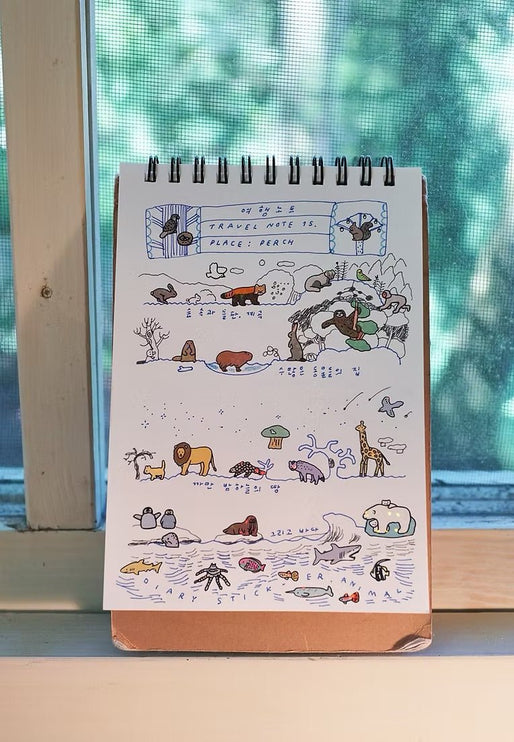 여행노트
TRAVEL NOTE 15.
PLACE: PERCH
숲속과 들판, 계곡
수많은 동물들의 집
까만 밤하늘의 땅
그리고 바다
DIARY STICKER. ANIMAL